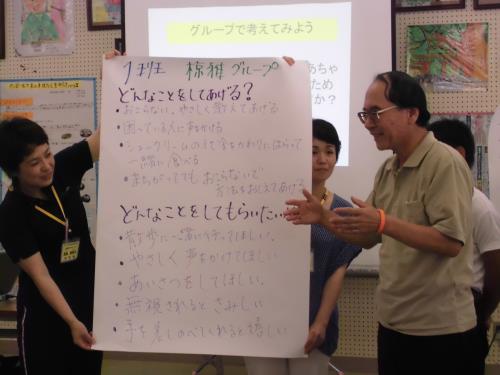 グループで考えてみよう
1班 椋雅グループ
どんなことをしてあげる?
・おこらない、やさしく教えてあげる
・困っている人に声かける
・シュークリームの上でお金をかわりにはらって
一緒に食べる
・まちがってても おこらないで
方法をおしえてあげる
どんなことをしてもらいたい
・散歩に一緒に行ってほしい。
・やさしく声をかけてほしい
・あいさつをしてほしい。
・無視されると さみしい
・手を差しのべてくれると嬉しい
あちゃ
ため
か?